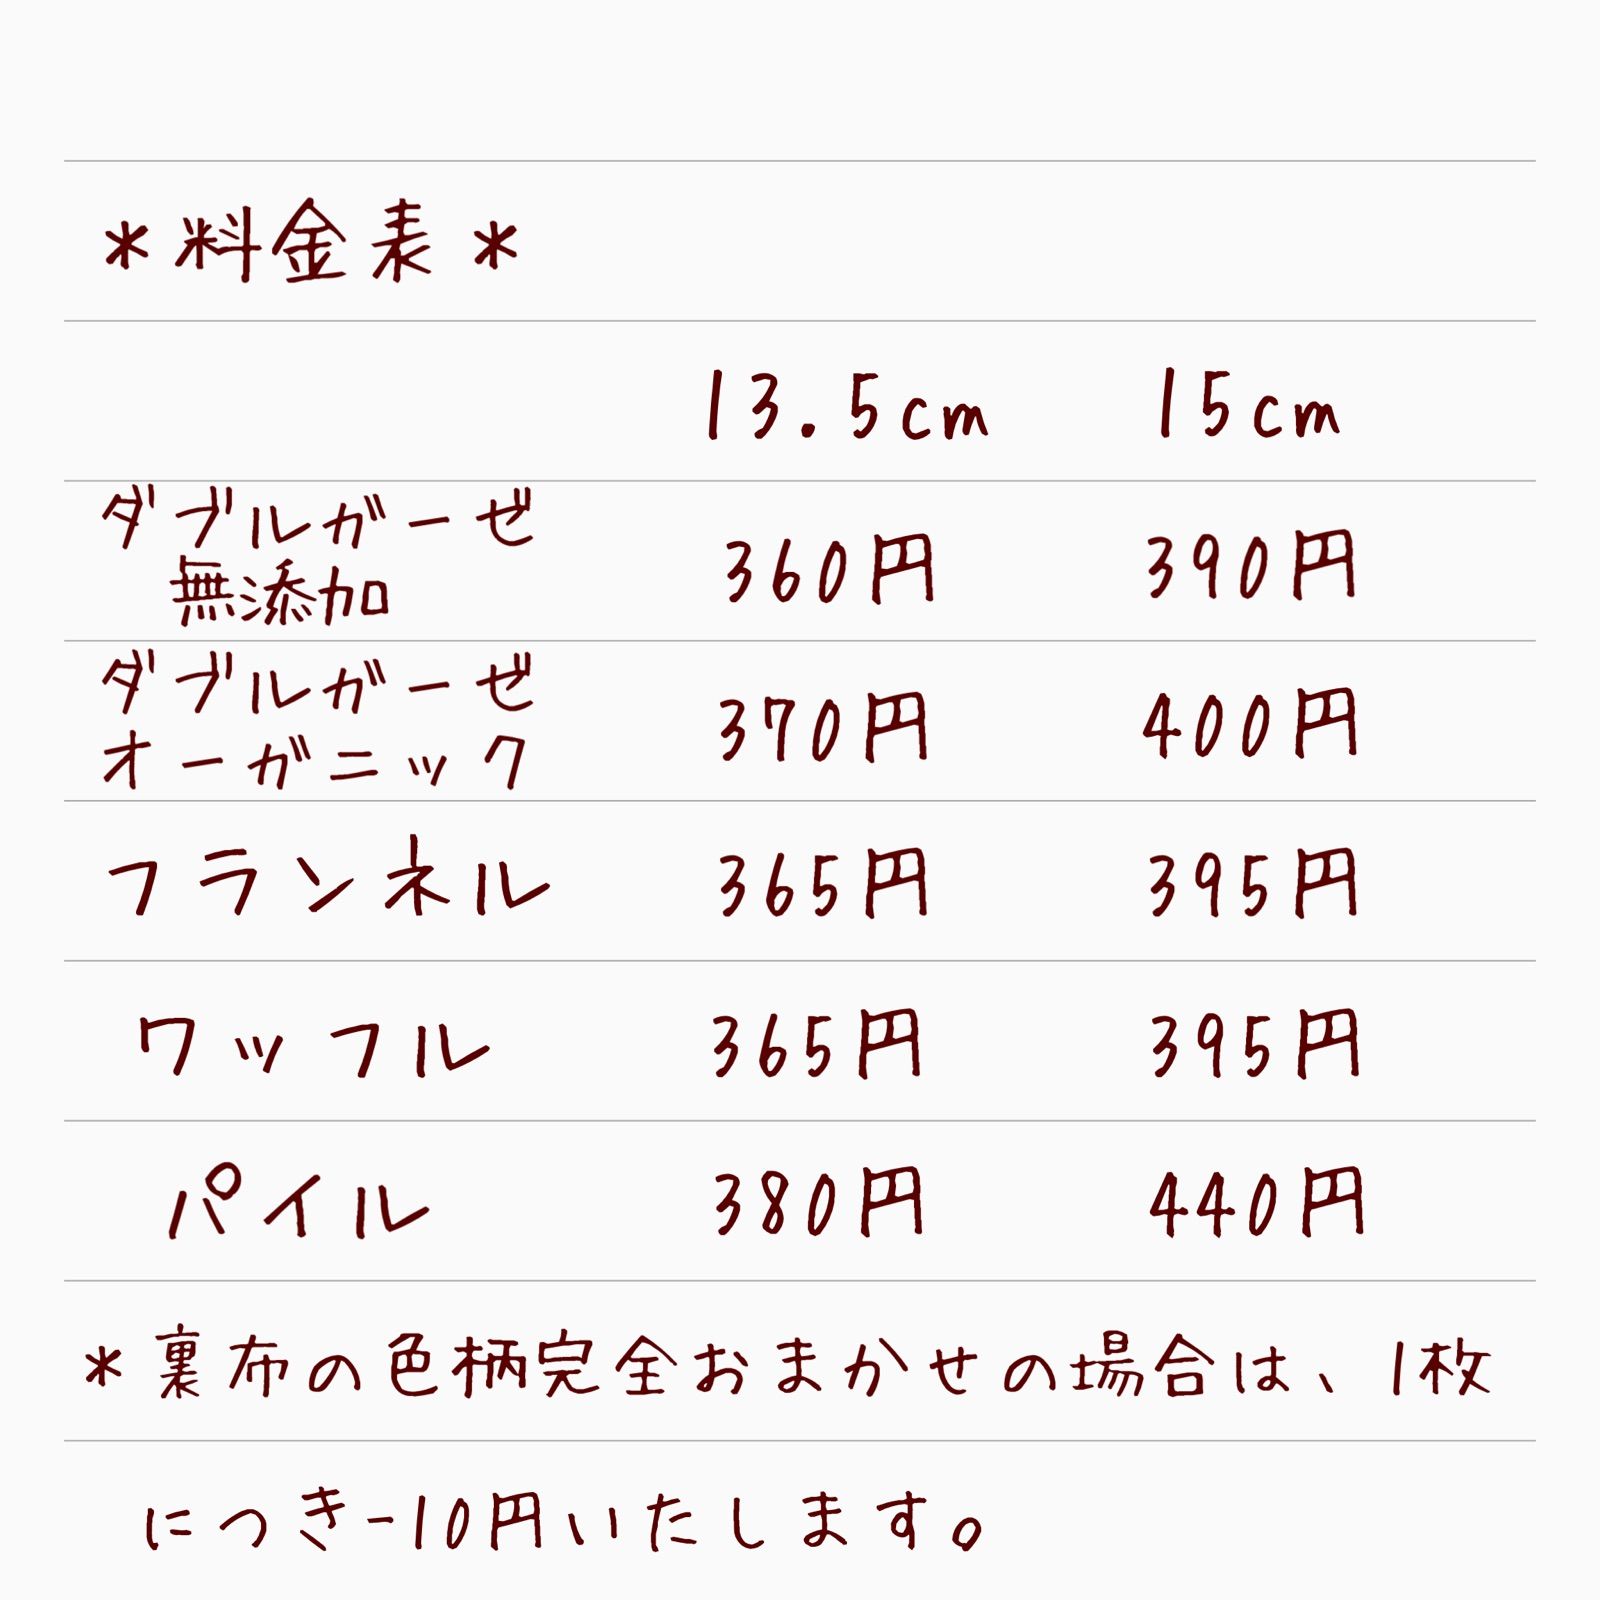 *料金表*
13.5cm 15cm
ダブルガーゼ
無添加 360円 390円
ダブルガーゼ
オーガニック 370円 400円
フランネル 365円 395円
ワッフル 365円 395円
パイル 380円 440円
*裏布の色柄完全おまかせの場合は、1枚
につき-10円いたします。